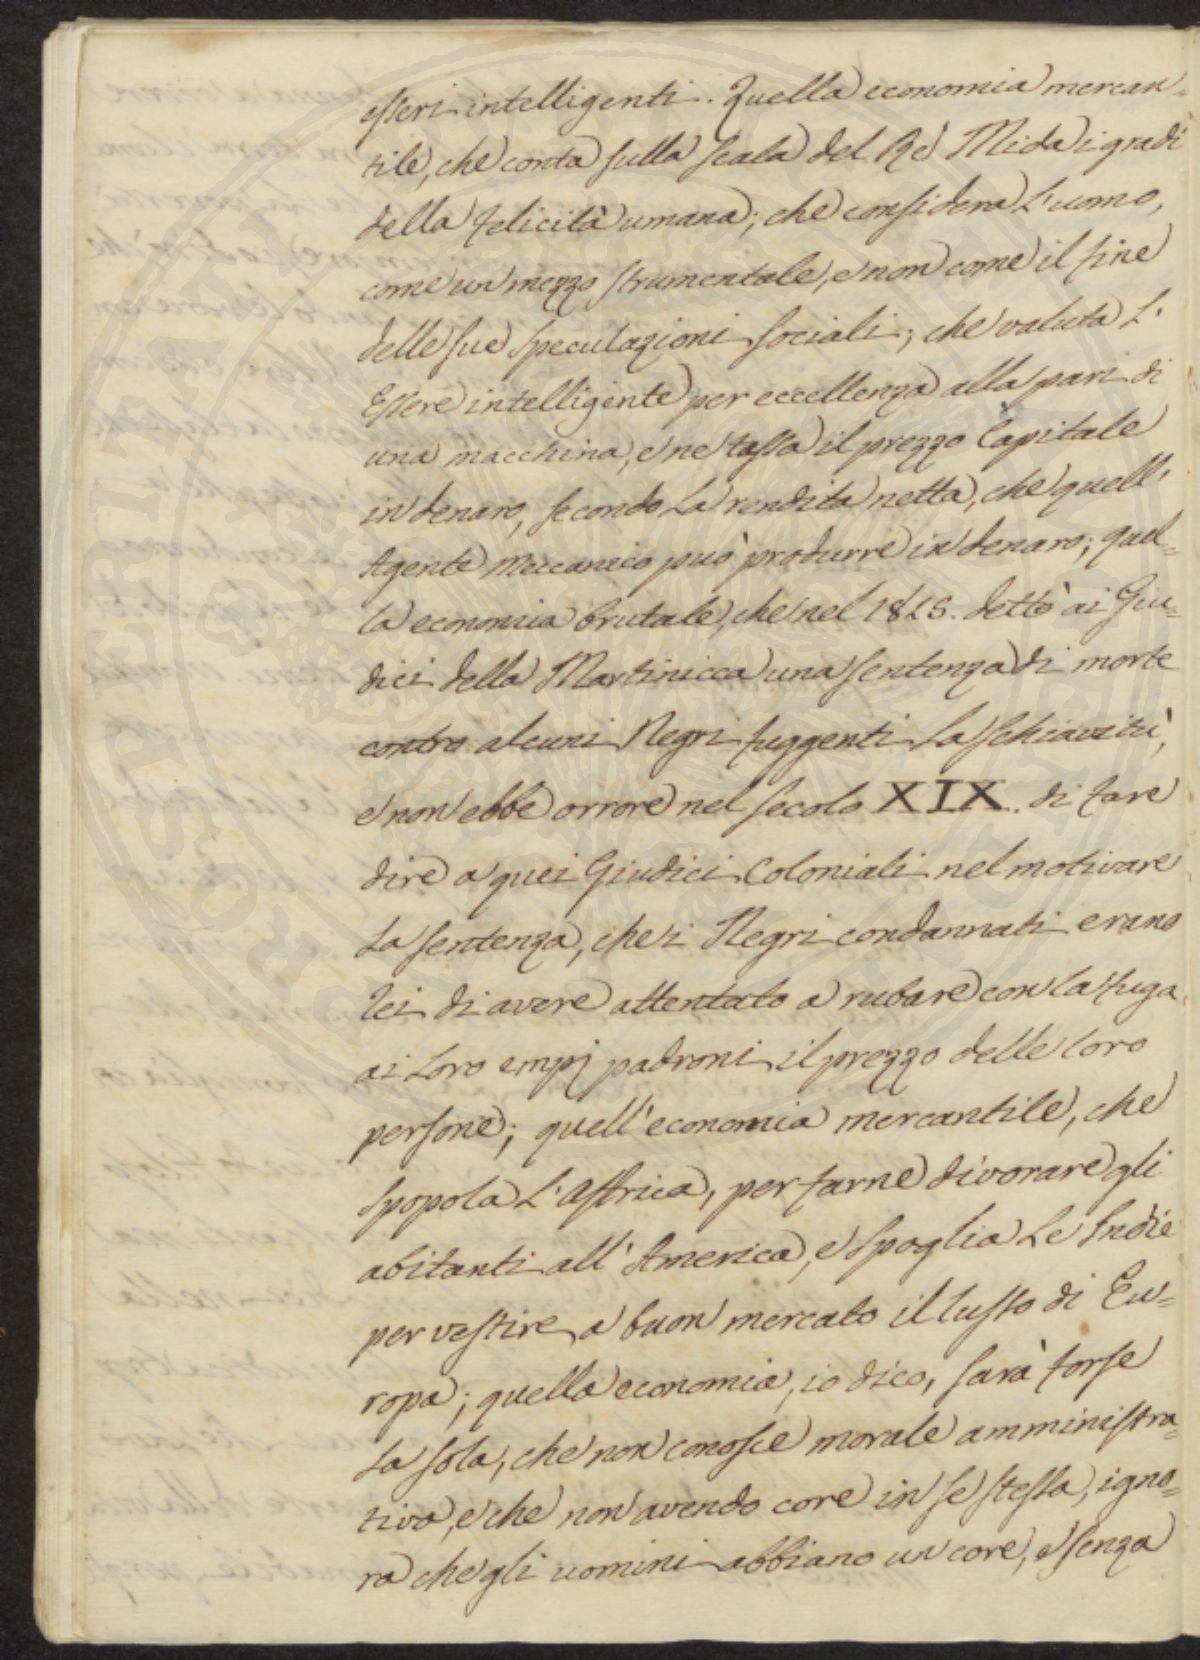 esseri intelligenti. Quella economia mercan-
tile, che conta sulla scala del Re Mida i gradi
della felicità umana; che considera L'uomo,
come un mezzo strumentale, e non come il fine
delle sue speculazioni sociali; che valuta L'
Essere intelligente per eccellenza alla pari di
una macchina, e ne tassa il prezzo Capitale
in denaro, secondo La rendita netta, che quell'
Agente Meccanico può produrre in denaro; quel=
la economia brutale, che nel 1815. dettò ai Giu=
dici della Martinicca una sentenza di morte
contro alcuni Negri fuggenti La schiavitù,
e non ebbe orrore nel secolo XIX. di fare
dire a quei Giudici Coloniali nel motivare
La sentenza, che i Negri condannati erano
rei di avere attentato a rubare con la fuga
ai Loro empj padroni il prezzo delle loro
persone; quell'economia mercantile, che
spopola L'Affrica, per farne divorare gli
abitanti all'America, e spoglia Le Indie
per vestire a buon mercato il lusso di Eu=
ropa; quella economia, io dico, sarà forse
La sola, che non conosce morale amministra-
tiva, e che non avendo core in se stessa, igno=
ra che gli uomini abbiano un core, e senza